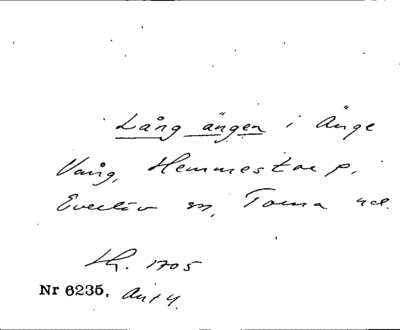 Lång ängen i Änge
Vång, Hemmestorp,
Everlöv sn, Torna hd.
Lh. 1705
Nr 6235.